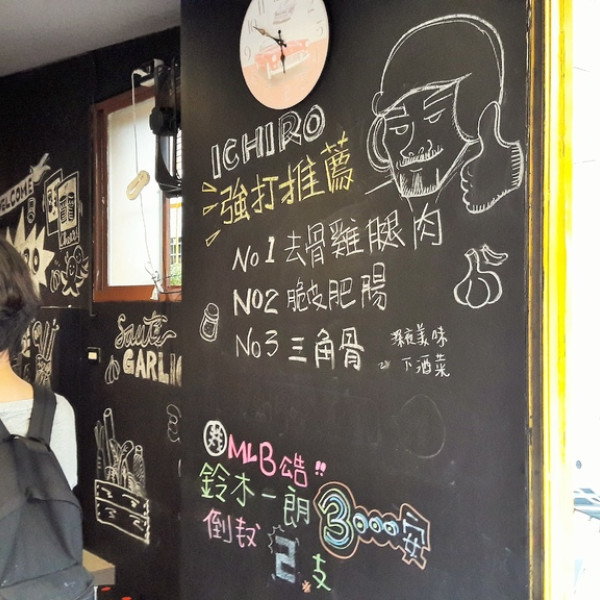 ICHIRO
強打推薦
No1 去骨雞腿肉
No2 脆皮肥腸
No3 三角骨
深夜美味
下酒菜
MLB公告!!
鈴木一朗
3000安
倒数
2支
WELCOME
Sauté
GARLIC